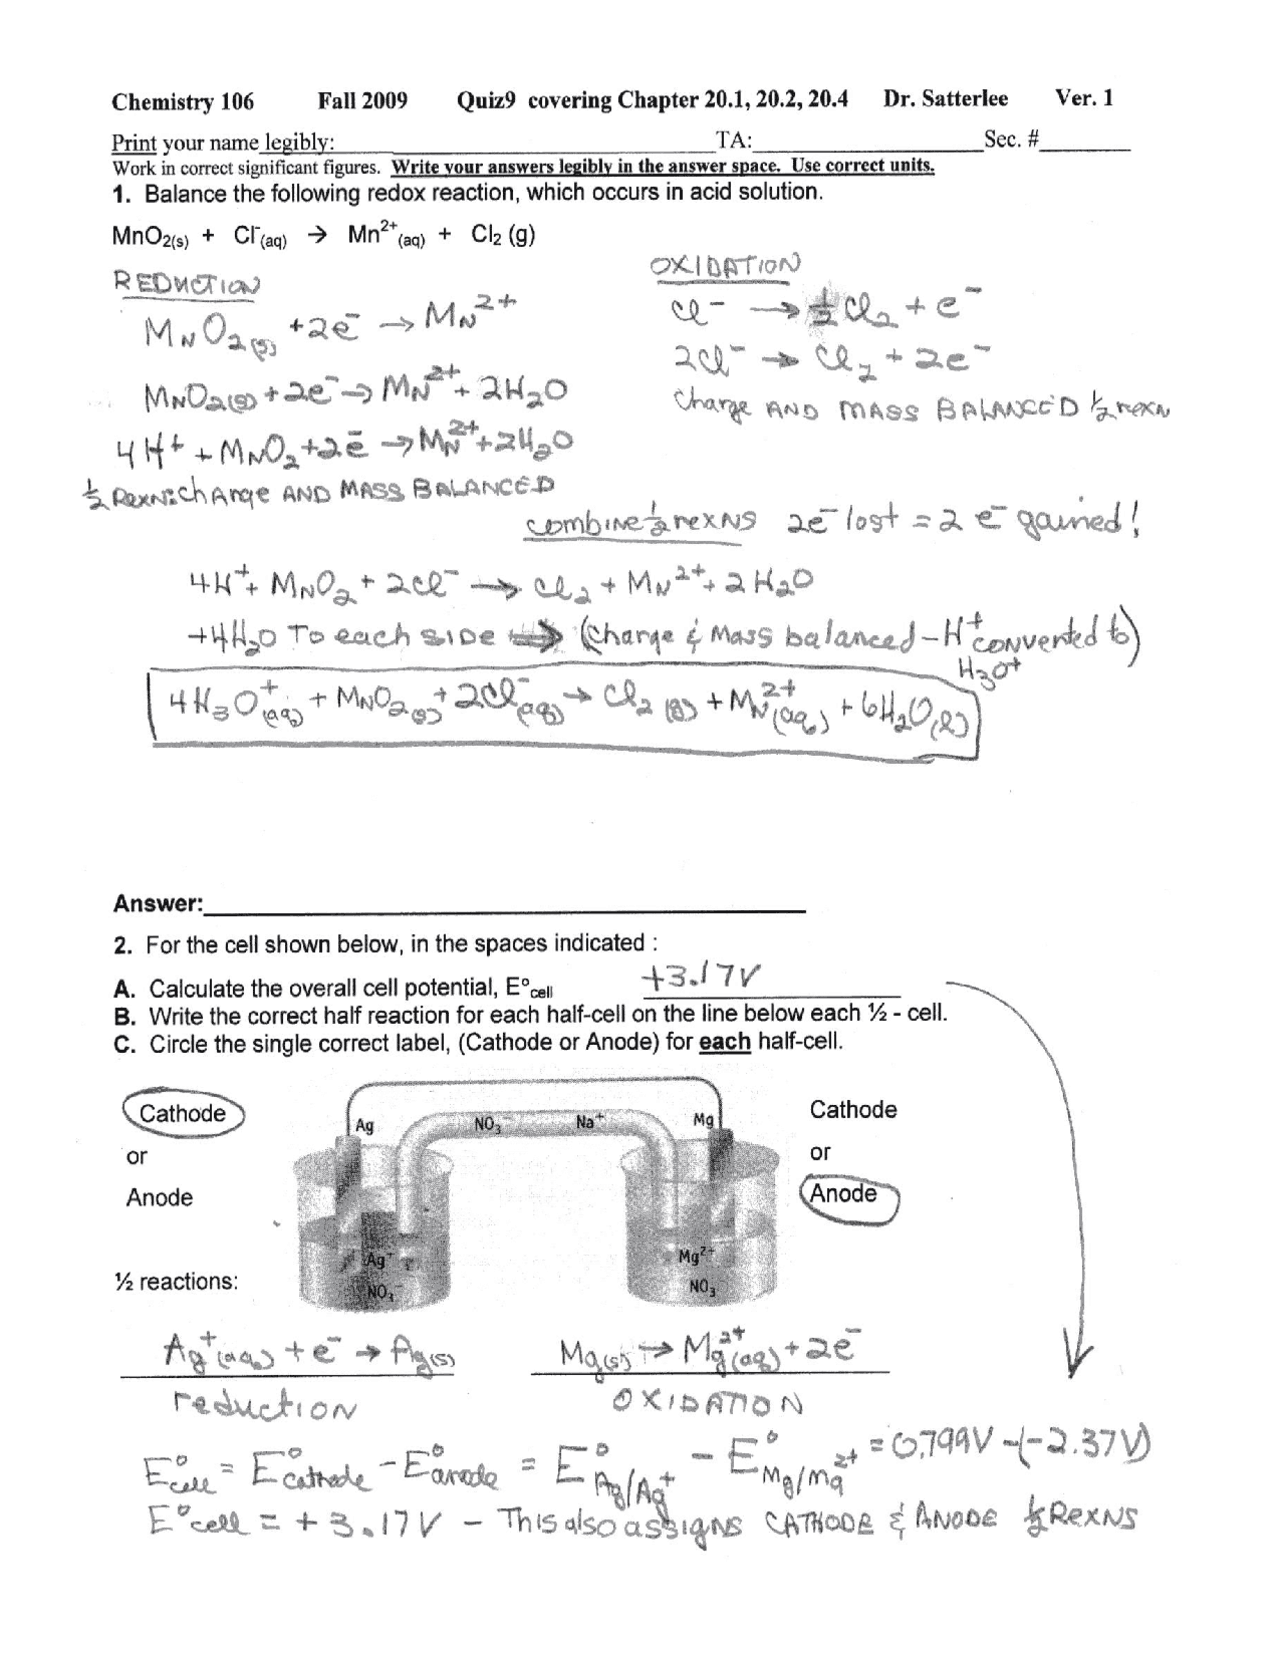 Chemistry 106 Fall 2009 Quiz9 covering Chapter 20.1, 20.2, 20.4 Dr. Satterlee Ver. 1
Print your name legibly:____ TA:____ Sec. #____
Work in correct significant figures. Write your answers legibly in the answer space. Use correct units.
1. Balance the following redox reaction, which occurs in acid solution.
MnO₂(s) + Cl⁻(aq) → Mn²⁺(aq) + Cl₂ (g)
REDUCTION
MnO₂(s) + 2e⁻ → Mn²⁺
MnO₂(s) + 2e⁻ → Mn²⁺ + 2H₂O
4H⁺ + MnO₂ + 2e⁻ → Mn²⁺ + 2H₂O
½ Rexn: charge AND MASS BALANCED
OXIDATION
Cl⁻ → ½Cl₂ + e⁻
2Cl⁻ → Cl₂ + 2e⁻
Charge AND MASS BALANCED ½ rexn
combine ½ rexns 2e⁻ lost = 2 e⁻ gained!
4H⁺ + MnO₂ + 2Cl⁻ → Cl₂ + Mn²⁺ + 2H₂O
+4H₂O To each side ⇒ (Charge & Mass balanced - H⁺ converted to)
H₃O⁺
4H₃O⁺(aq) + MnO₂(s) + 2Cl⁻(aq) → Cl₂(g) + Mn²⁺(aq) + 6H₂O(l)
Answer:____
2. For the cell shown below, in the spaces indicated :
A. Calculate the overall cell potential, E°cell +3.17V
B. Write the correct half reaction for each half-cell on the line below each ½ - cell.
C. Circle the single correct label, (Cathode or Anode) for each half-cell.
Cathode
or
Anode
Ag NO₃⁻ Na⁺ Mg
Ag⁺
NO₃⁻
Mg²⁺
NO₃
Cathode
or
Anode
½ reactions:
Ag⁺(aq) + e⁻ → Ag(s) Mg(s) → Mg²⁺(aq) + 2e⁻
reduction OXIDATION
E°cell = E°cathode - E°anode = E°Ag/Ag⁺ - E°Mg/Mg²⁺ = 0.799V -(-2.37V)
E°cell = +3.17V - This also assigns CATHODE & ANODE ½ Rexns